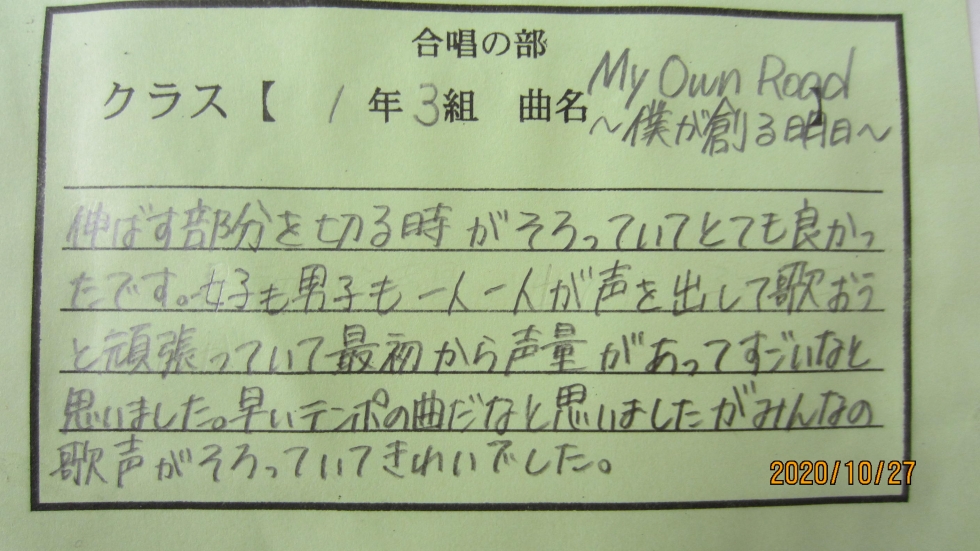 合唱の部
クラス【 1 年 3 組 曲名 My Own Road 】
～僕が創る明日～
伸ばす部分を切る時がそろっていてとても良かっ
たです。女子も男子も一人一人が声を出して歌おう
と頑張っていて最初から声量があってすごいなと
思いました。早いテンポの曲だなと思いましたがみんなの
歌声がそろっていてきれいでした。
2020/10/27